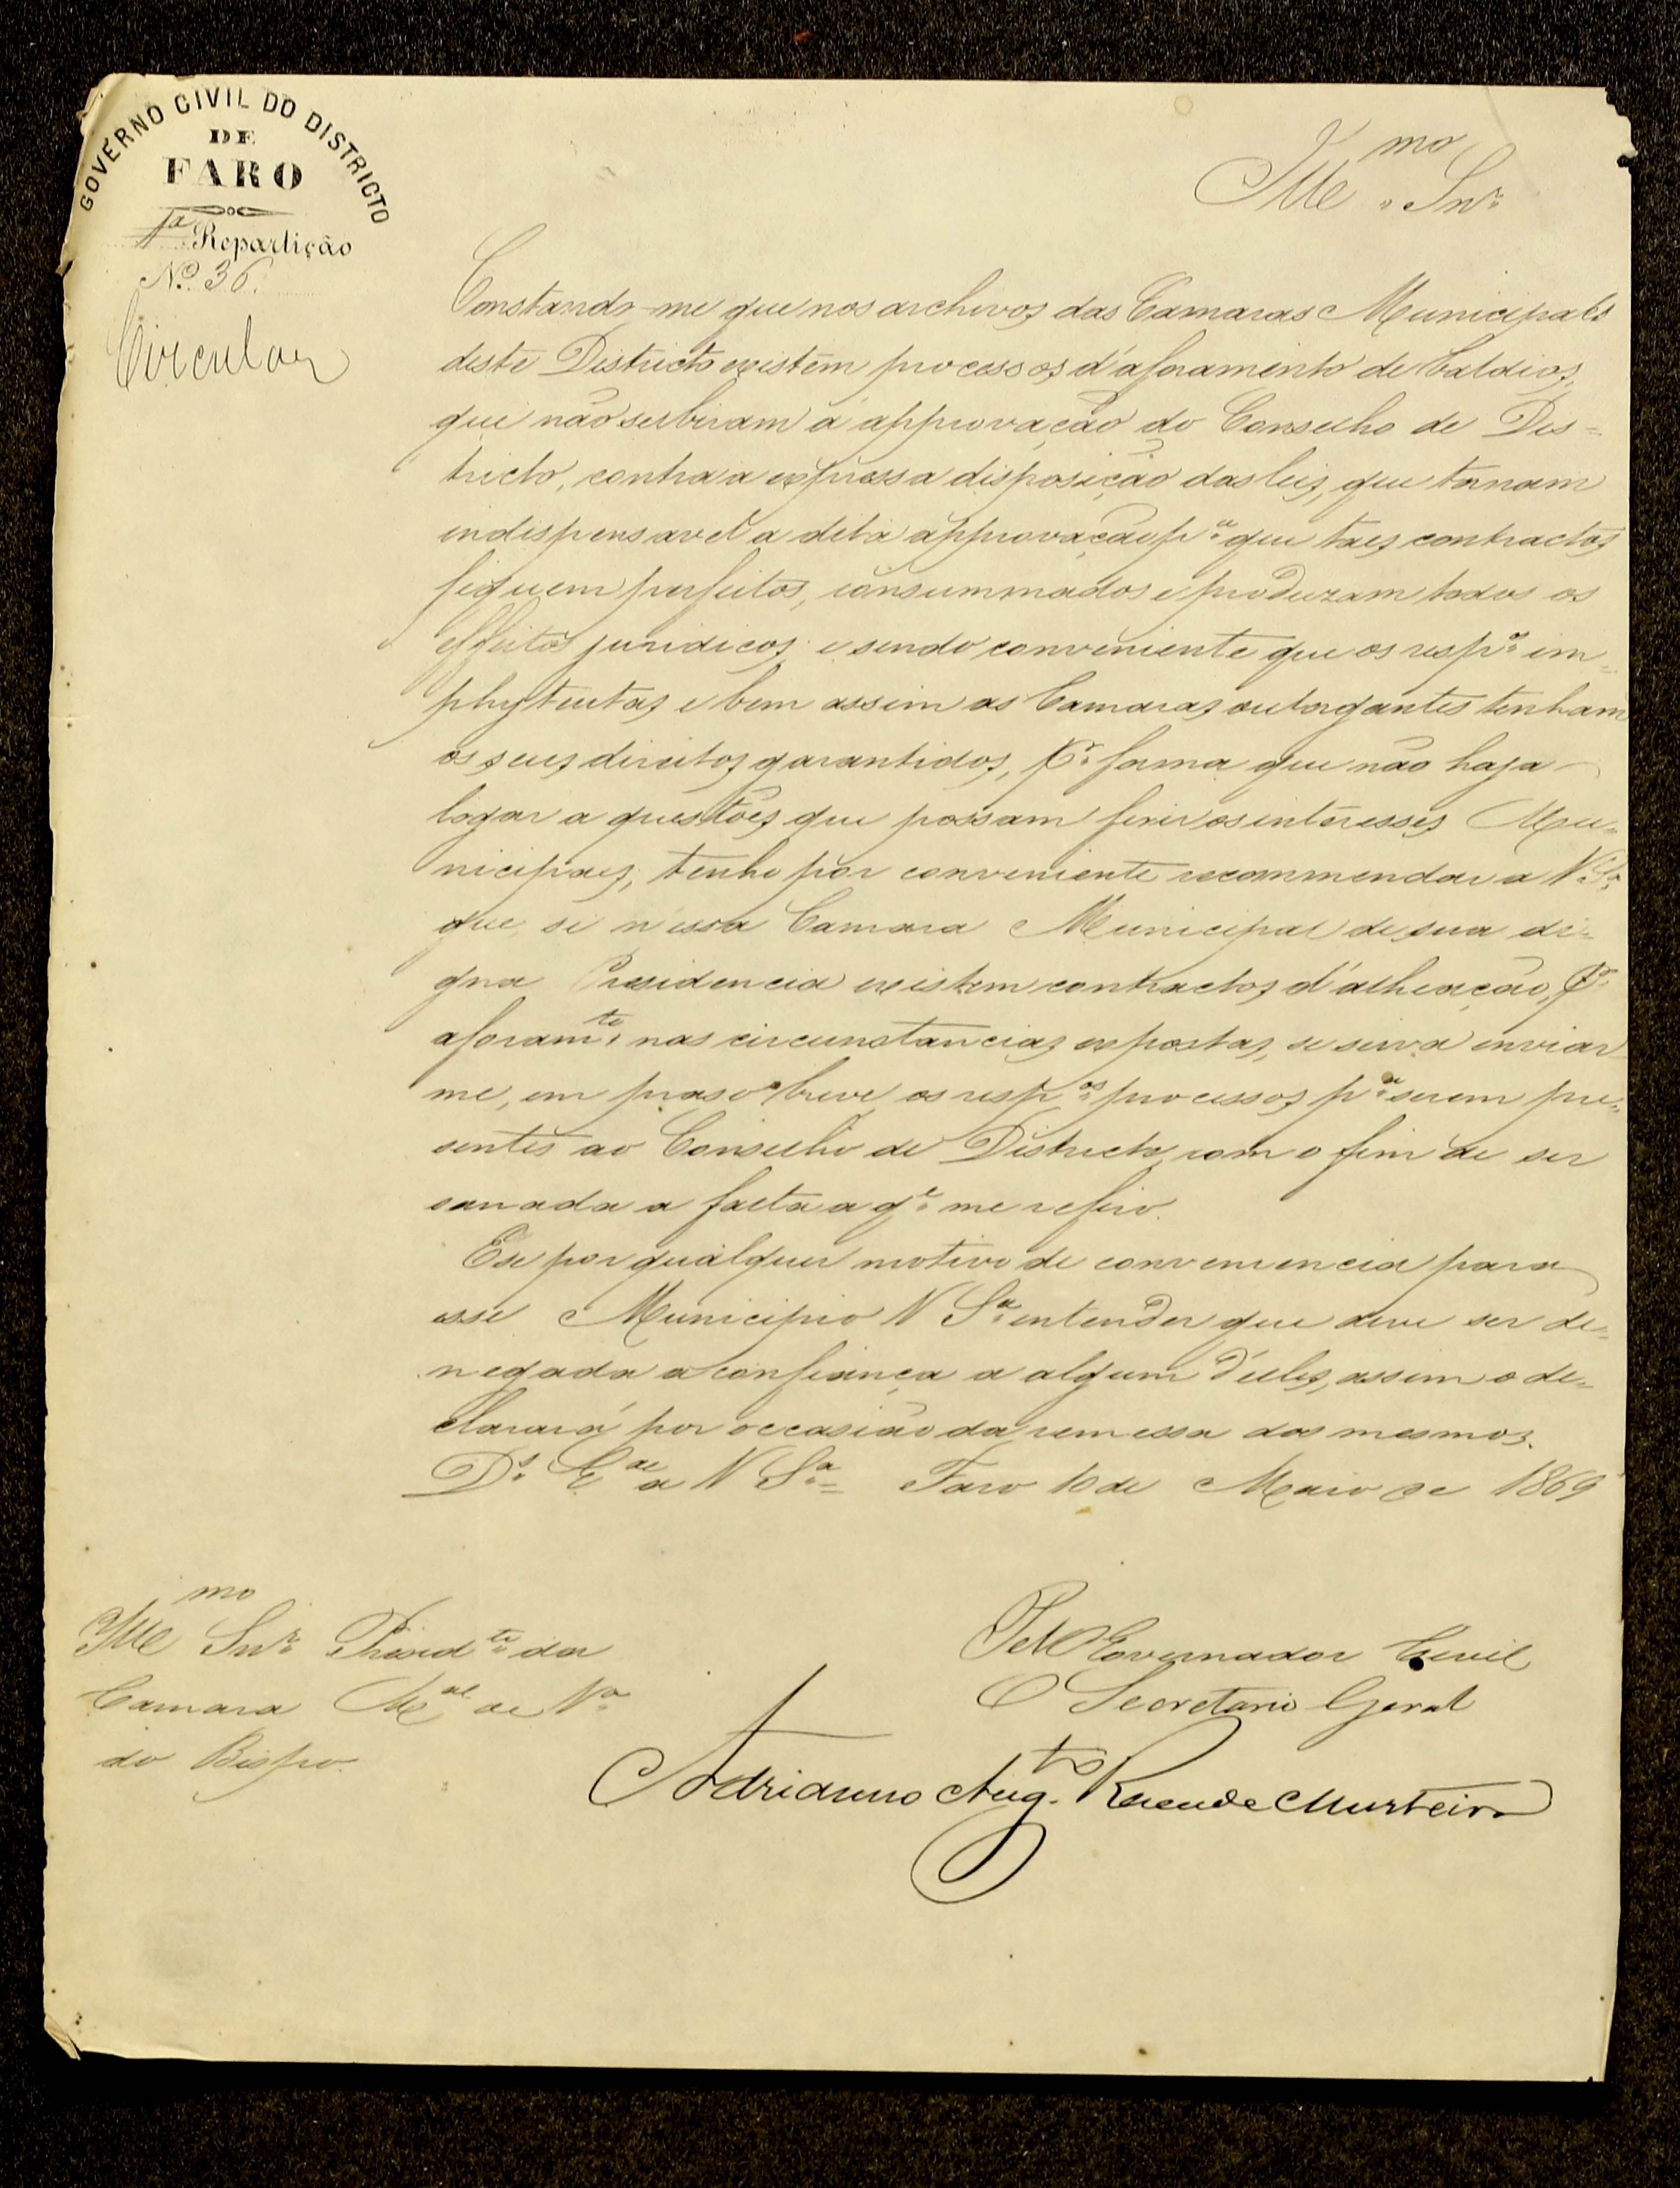 GOVERNO CIVIL DO DISTRICTO
DE
FARO
1ª Repartição
Nº 36.
Circular
Illmo. Snr.
Constando-me que nos archivos das Camaras Municipaes
deste Districto existem processos d'aforamento de Baldios,
que não subiram á approvação do Conselho de Dis=
tricto, contra a expressa disposição das leis, que tornam
indispensavel a dita approvação pª que taes contractos
fiquem perfeitos, consummados e produzam todos os
effeitos juridicos; e sendo conveniente que os respos im=
phyteutas e bem assim as Camaras outorgantes tenham
os seus direitos garantidos, pr forma que não haja
logar a questões que possam ferir os interesses Mu=
nicipaes, tenho por conveniente recommendar a V. Sª
que, se n'essa Camara Municipal de sua di=
gna Presidencia existem contractos d'alheação, pr
aforamto nas circunstancias expostas, se sirva enviar
me, em praso breve, os respos processos pª serem pre=
sentes ao Conselho de Districto, com o fim de ser
sanada a falta a qe me refiro.
E se por qualquer motivo de conveniencia para
esse Municipio V Sª entender que deve ser de=
negada a confiança a algum d'eles, assim o de=
clarará por occasião da remessa dos mesmos.
Ds Gde a V Sª = Faro 10 de Maio de 1869
Illmo Snr Presidte da
Camara Mal de Vª
do Bispo.
Pelo Governador Civil
O Secretario Geral
Adrianno Augto Resende Murteira